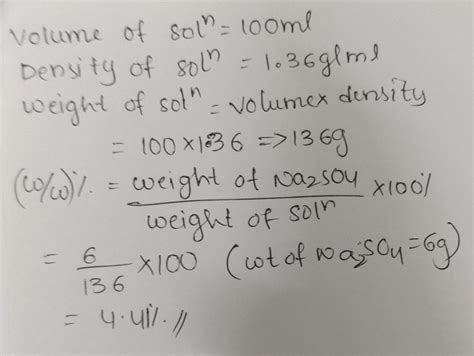 Volume of solⁿ = 100ml
Density of solⁿ = 1.36g/ml
weight of solⁿ = volume x density
= 100 x 1.36 => 136g
(w/w)%. = weight of Na2SO4 x 100%
weight of solⁿ
= 6 x 100 (wt of Na2SO4 = 6g)
136
= 4.41%. //